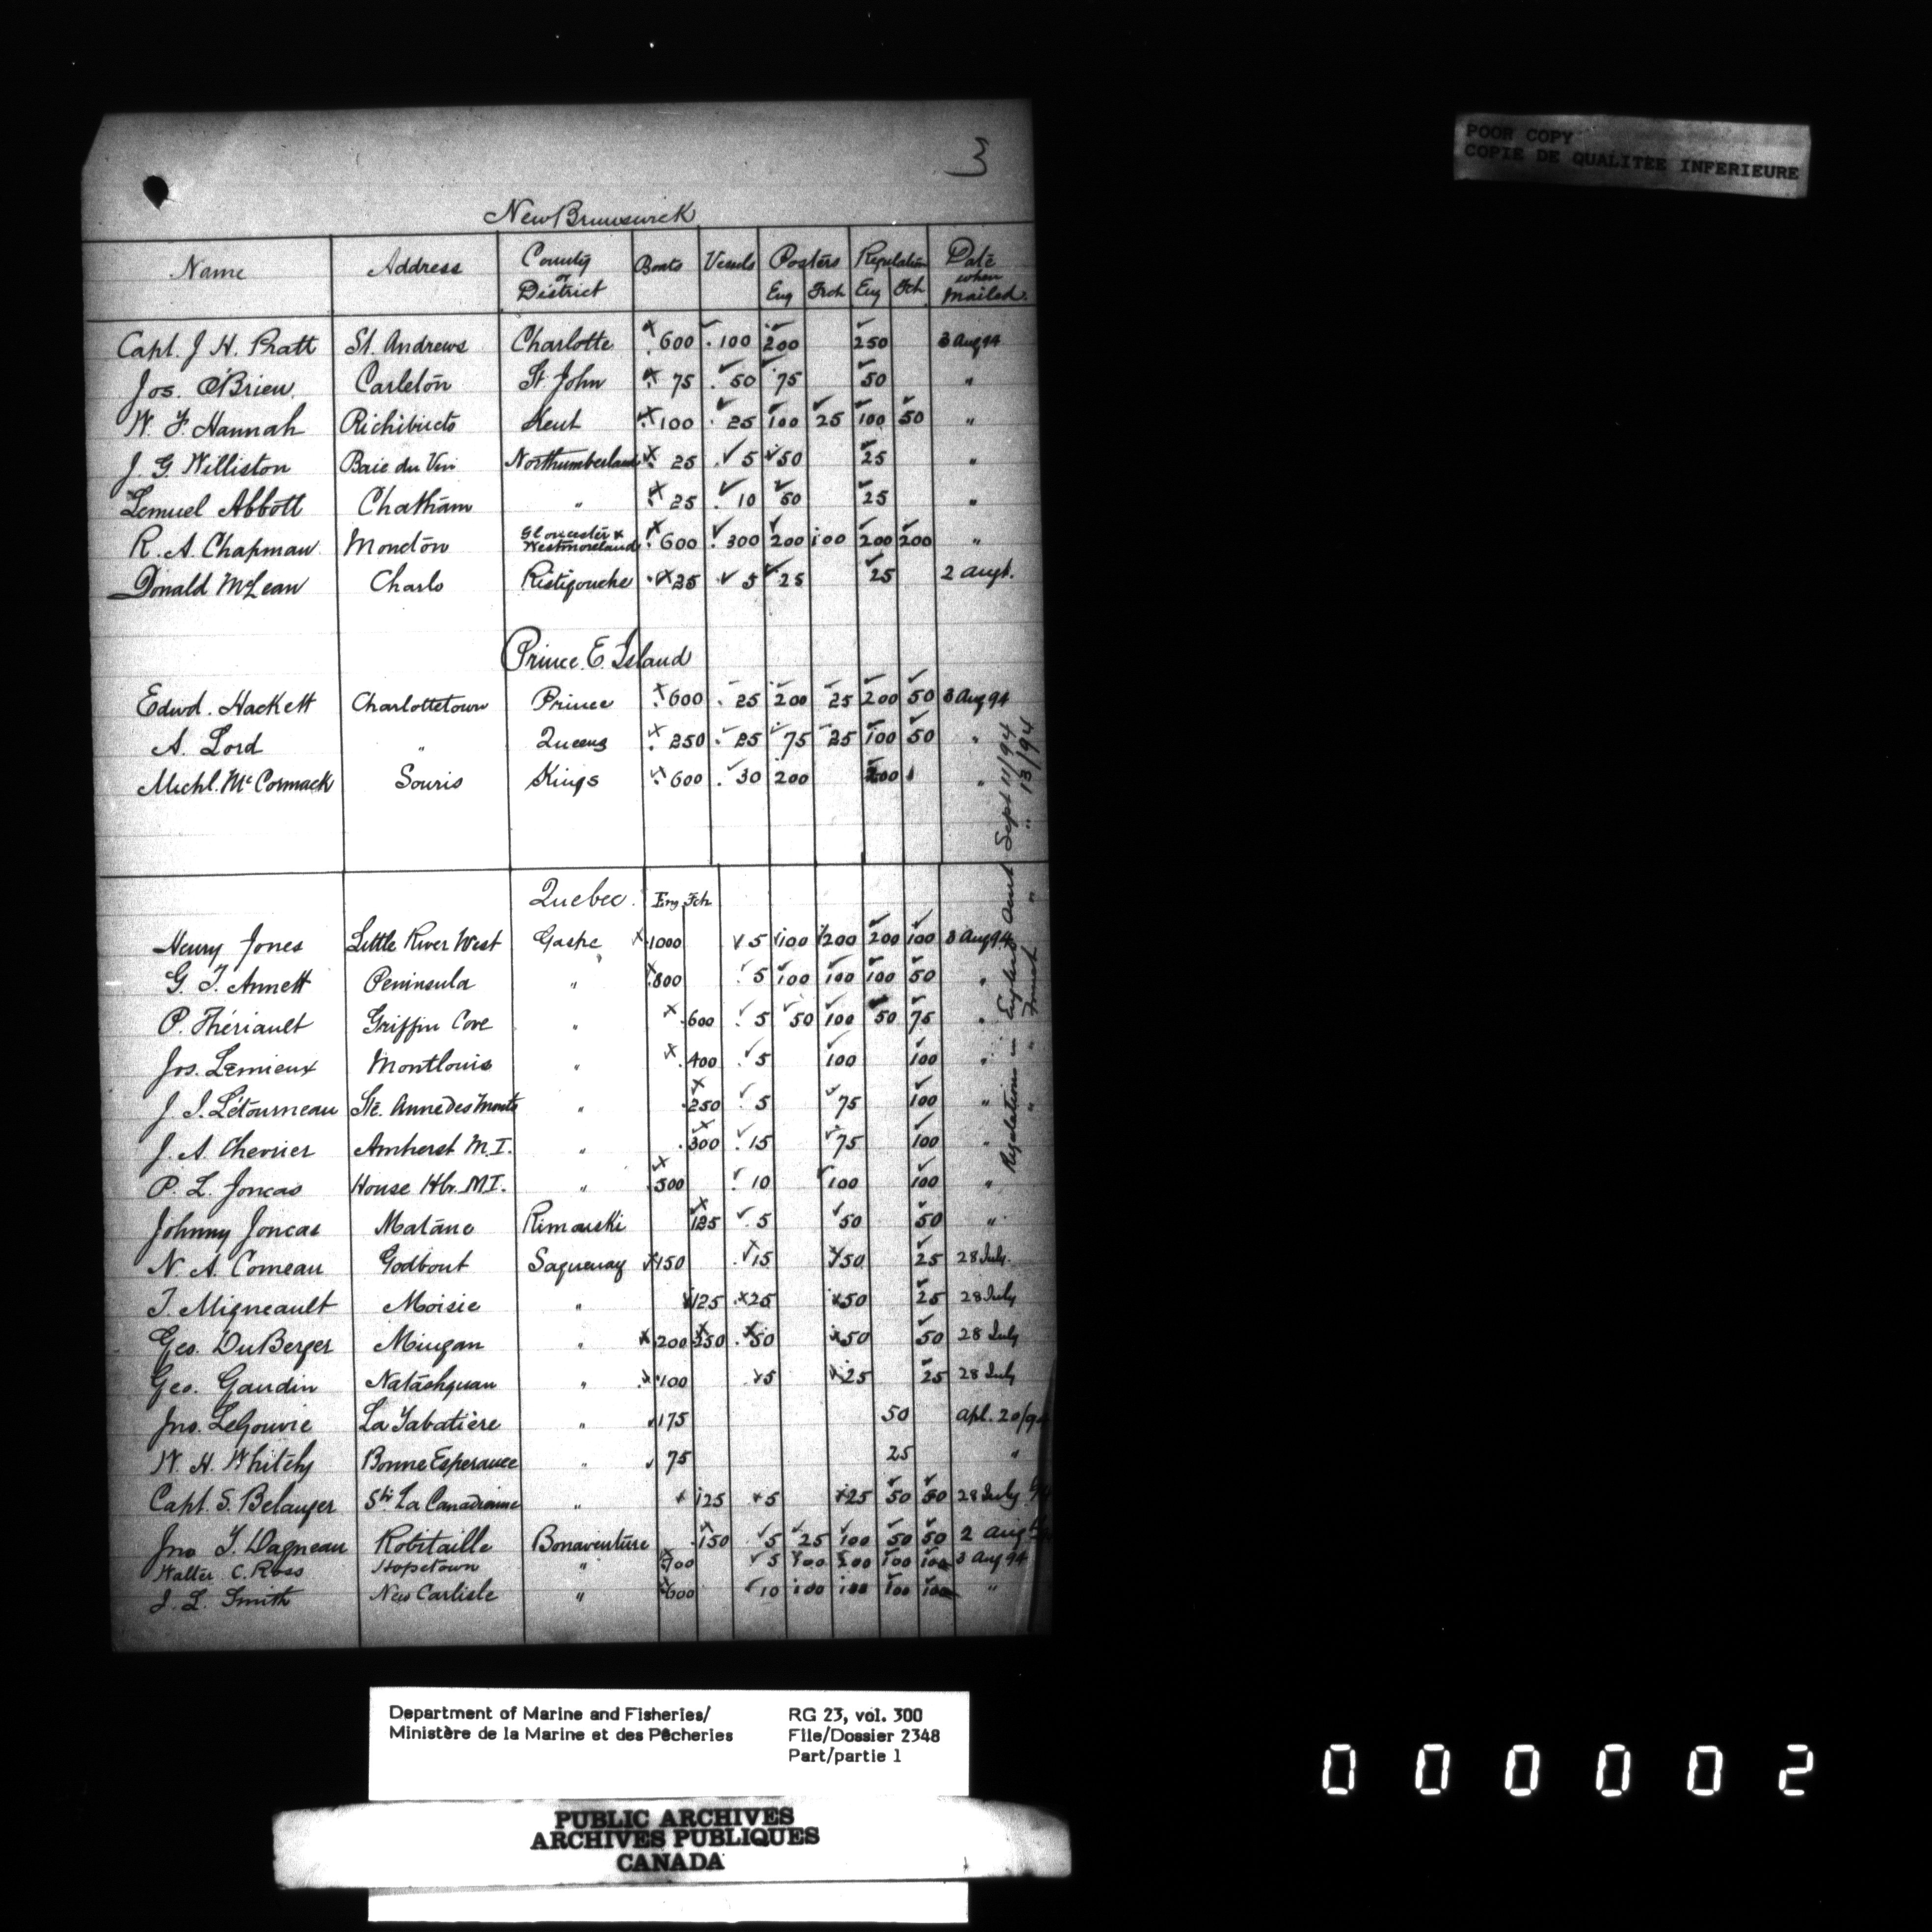 3
POOR COPY
COPIE DE QUALITEE INFERIEURE
New Brunswick
Name Address County or District Boats Vessels Posters Eng Frch Regulation Eng Fch Date when mailed.
Capt. J H. Pratt St. Andrews Charlotte 600 100 200 250 3 Aug 94
Jos. O'Brien Carleton St. John 75 50 75 50 "
W. F. Hannah Richibucto Kent 100 25 100 25 100 50 "
J. G. Williston Baie du Vin Northumberland 25 5 50 25 "
Lemuel Abbott Chatham " 25 10 50 25 "
R. A. Chapman Moncton Gloucester & Westmoreland 600 300 200 100 200 200 "
Donald McLean Charlo Ristigouche 25 5 25 25 2 Augt.
Prince E. Island
Edwd. Hackett Charlottetown Prince 600 25 200 25 200 50 3 Aug 94
A. Lord " Queens 250 25 75 25 100 50 "
Michl. McCormack Souris Kings 600 30 200 200 "
Quebec. Eng Fch
Henry Jones Little River West Gaspe 1000 5 100 200 200 100 3 Aug 94
G. T. Annett Peninsula " 800 5 100 100 100 50 "
P. Thériault Griffin Cove " 600 5 50 100 50 75 "
Jos. Lemieux Montlouis " 400 5 100 100 "
J. J. Létourneau Ste. Anne des Monts " 250 5 75 100 "
J. A. Chevrier Amherst M.I. " 300 15 75 100 "
P. L. Joncas House Hbr. M I. " 500 10 100 100 "
Johnny Joncas Matane Rimouski 125 5 50 50 "
N. A. Comeau Godbout Saguenay 150 15 50 25 28 July.
T. Migneault Moisie " 125 25 50 25 28 July
Geo. DuBerger Mingan " 200 250 50 50 50 28 July
Geo. Gaudin Natashquan " 100 5 25 25 28 July
Jno. LeGouvie La Tabatière " 175 50 Apl. 20/94
W. H. Whitely Bonne Esperance " 75 25 "
Capt. S. Belanger Str La Canadienne " 125 5 25 50 50 28 July
Jno T. Dagneau Robitaille Bonaventure 150 5 25 100 50 50 2 Aug
Walter C. Ross Hopetown " 700 5 100 200 100 100 3 Aug 94
J. L. Smith New Carlisle " 600 10 100 100 100 100 "
Regulations in English sent Sept 11/94
" " French " " 13/94
Department of Marine and Fisheries/
Ministère de la Marine et des Pêcheries
RG 23, vol. 300
File/Dossier 2348
Part/partie 1
PUBLIC ARCHIVES
ARCHIVES PUBLIQUES
CANADA
000002